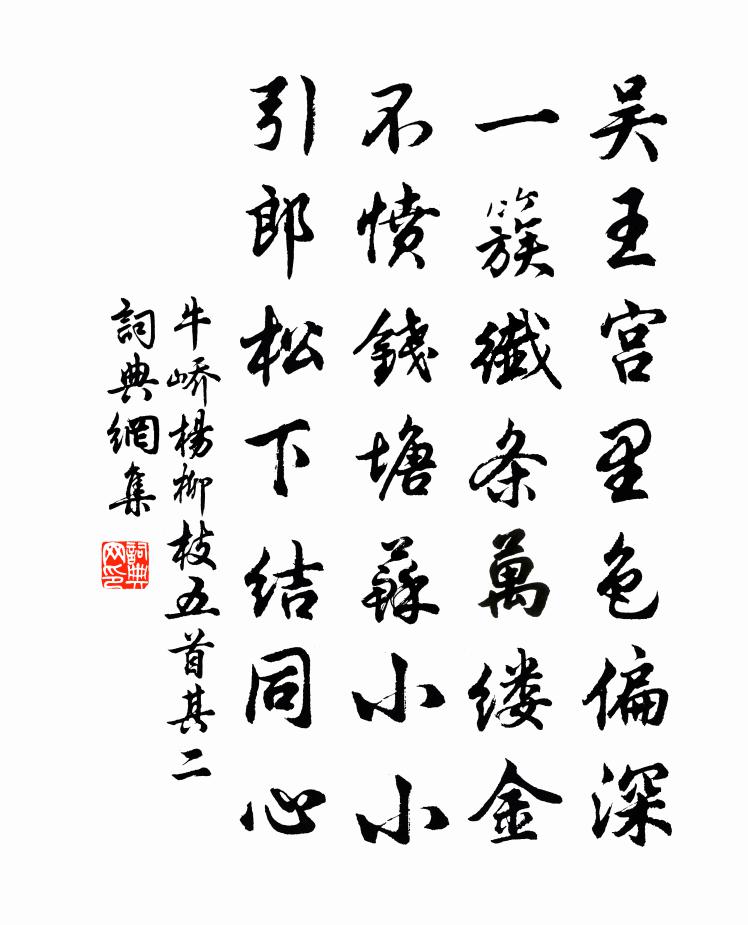 吴王宫里色偏深
一簇纖条萬缕金
不憤錢塘蘇小小
引郎松下结同心
牛嶠楊柳枝五首其二
詞典網集
詞典网印